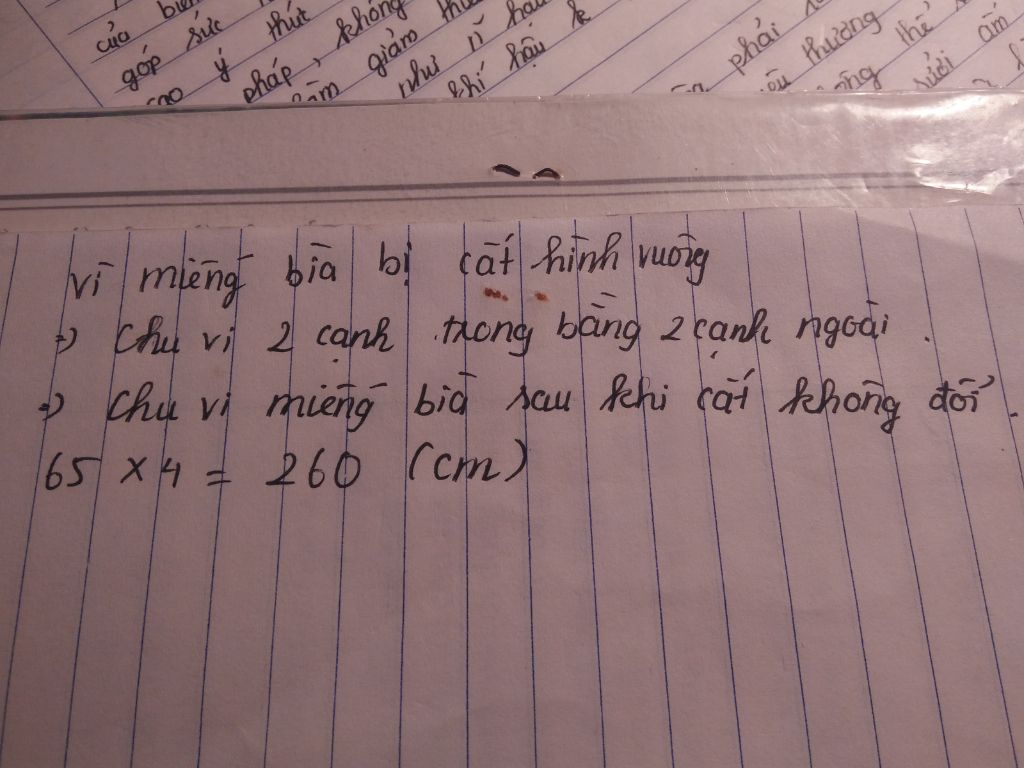 của
góp sức thức không
ý giảm
pháp, như vì hậu
khí hậu
phải
thương
thể
sưởi ấm
vì miếng bìa bị cắt hình vuông
=> Chu vi 2 cạnh trong bằng 2 cạnh ngoài.
=> Chu vi miếng bìa sau khi cắt không đổi.
65 x 4 = 260 (cm)